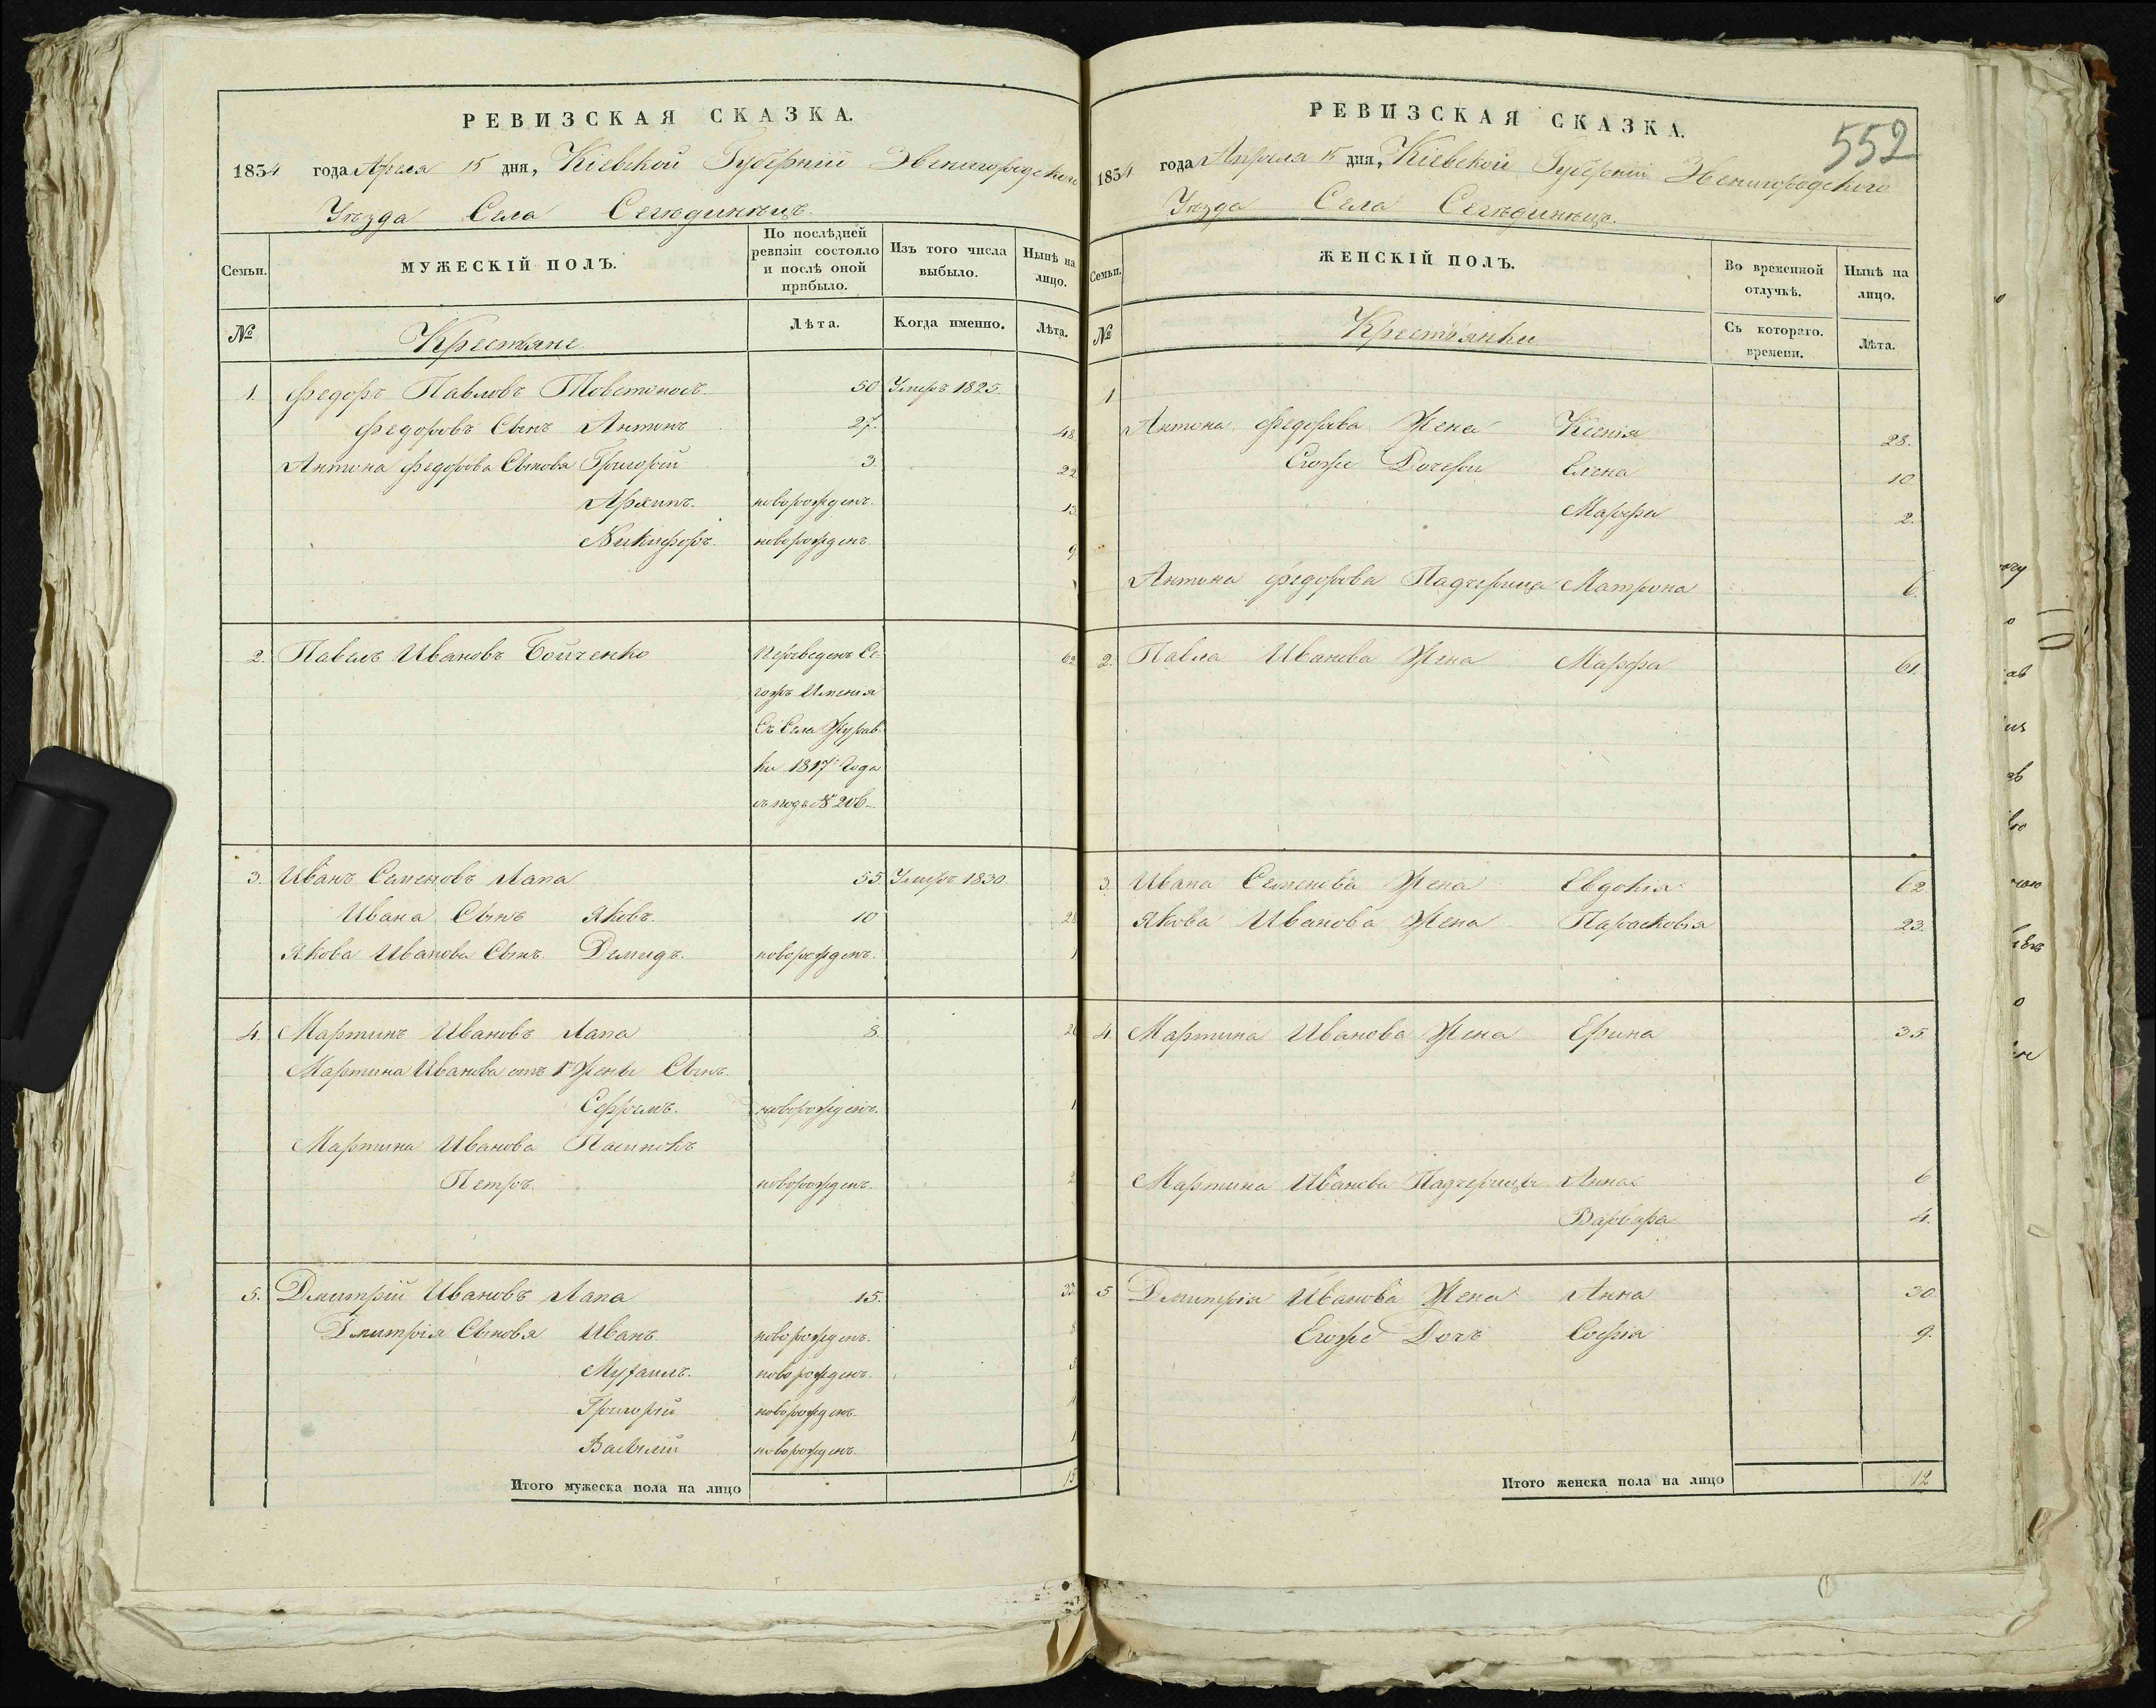 РЕВИЗСКАЯ СКАЗКА.
1834 года Апреля 15 дня, Кіевской Губерніи Звенигородского
Уезда Села
Семьи.
МУЖЕСКІЙ ПОЛЪ.
По послѣдней
ревизіи состояло
и послѣ оной
прибыло.
Изъ того числа
выбыло.
Нынѣ на
лицо.
№
Крестяне
Лѣта.
Когда именно.
Лѣта.
1. Федоръ Павловъ Товстоносъ. 50 Умеръ 1825.
Федоровъ Сынъ Антонъ 27. 48.
Антона Федорова Сыновя Григорій 3. 22
Архипъ. новорожденъ. 13
Никифоръ. новорожденъ. 9
2. Павелъ Ивановъ Бойченко Переведенъ Се- 62
гожъ Имения
Съ Села Журав-
ки 1817 Года
3. Иванъ Семеновъ Лапа 55. Умеръ 1830.
Ивана Сынъ Яковъ. 10 28
Якова Иванова Сынъ Демидъ. новорожденъ. 1
4. Мартинъ Ивановъ Лапа 8. 26
Мартина Иванова отъ 1й Жены Сынъ.
Ефремъ. новорожденъ. 1
Мартина Иванова Пасинокъ
Петръ. новорожденъ. 2
5. Дмитрій Ивановъ Лапа 15. 33
Дмитрія Сыновя Иванъ. новорожденъ. 8
Михаилъ. новорожденъ.
Григорій новорожденъ.
Василій новорожденъ. 1
Итого мужеска пола на лицо 15
РЕВИЗСКАЯ СКАЗКА.
552
1834 года Апреля 15 дня, Кіевской Губерніи Звенигородского
Уезда Села
Семьи.
ЖЕНСКІЙ ПОЛЪ.
Во временной
отлучкѣ.
Нынѣ на
лицо.
№
Крестянки
Съ котораго.
времени.
Лѣта.
1
Антона Федорова Жена Ксенія 28.
Егоже Дочери Елена 10
Марфа 2.
Антона Федорова Падчерица Матрона 6.
2. Павла Иванова Жена Марфа 61.
3. Ивана Семенова Жена Евдокія 62
Якова Иванова Жена Парасковія 23.
4. Мартина Иванова Жена Ерина 35
Мартина Иванова Падчерицы Анна 6
Варвара 4.
5 Дмитрія Иванова Жена Анна 30
Егоже Дочъ Софія 9.
Итого женска пола на лицо 12